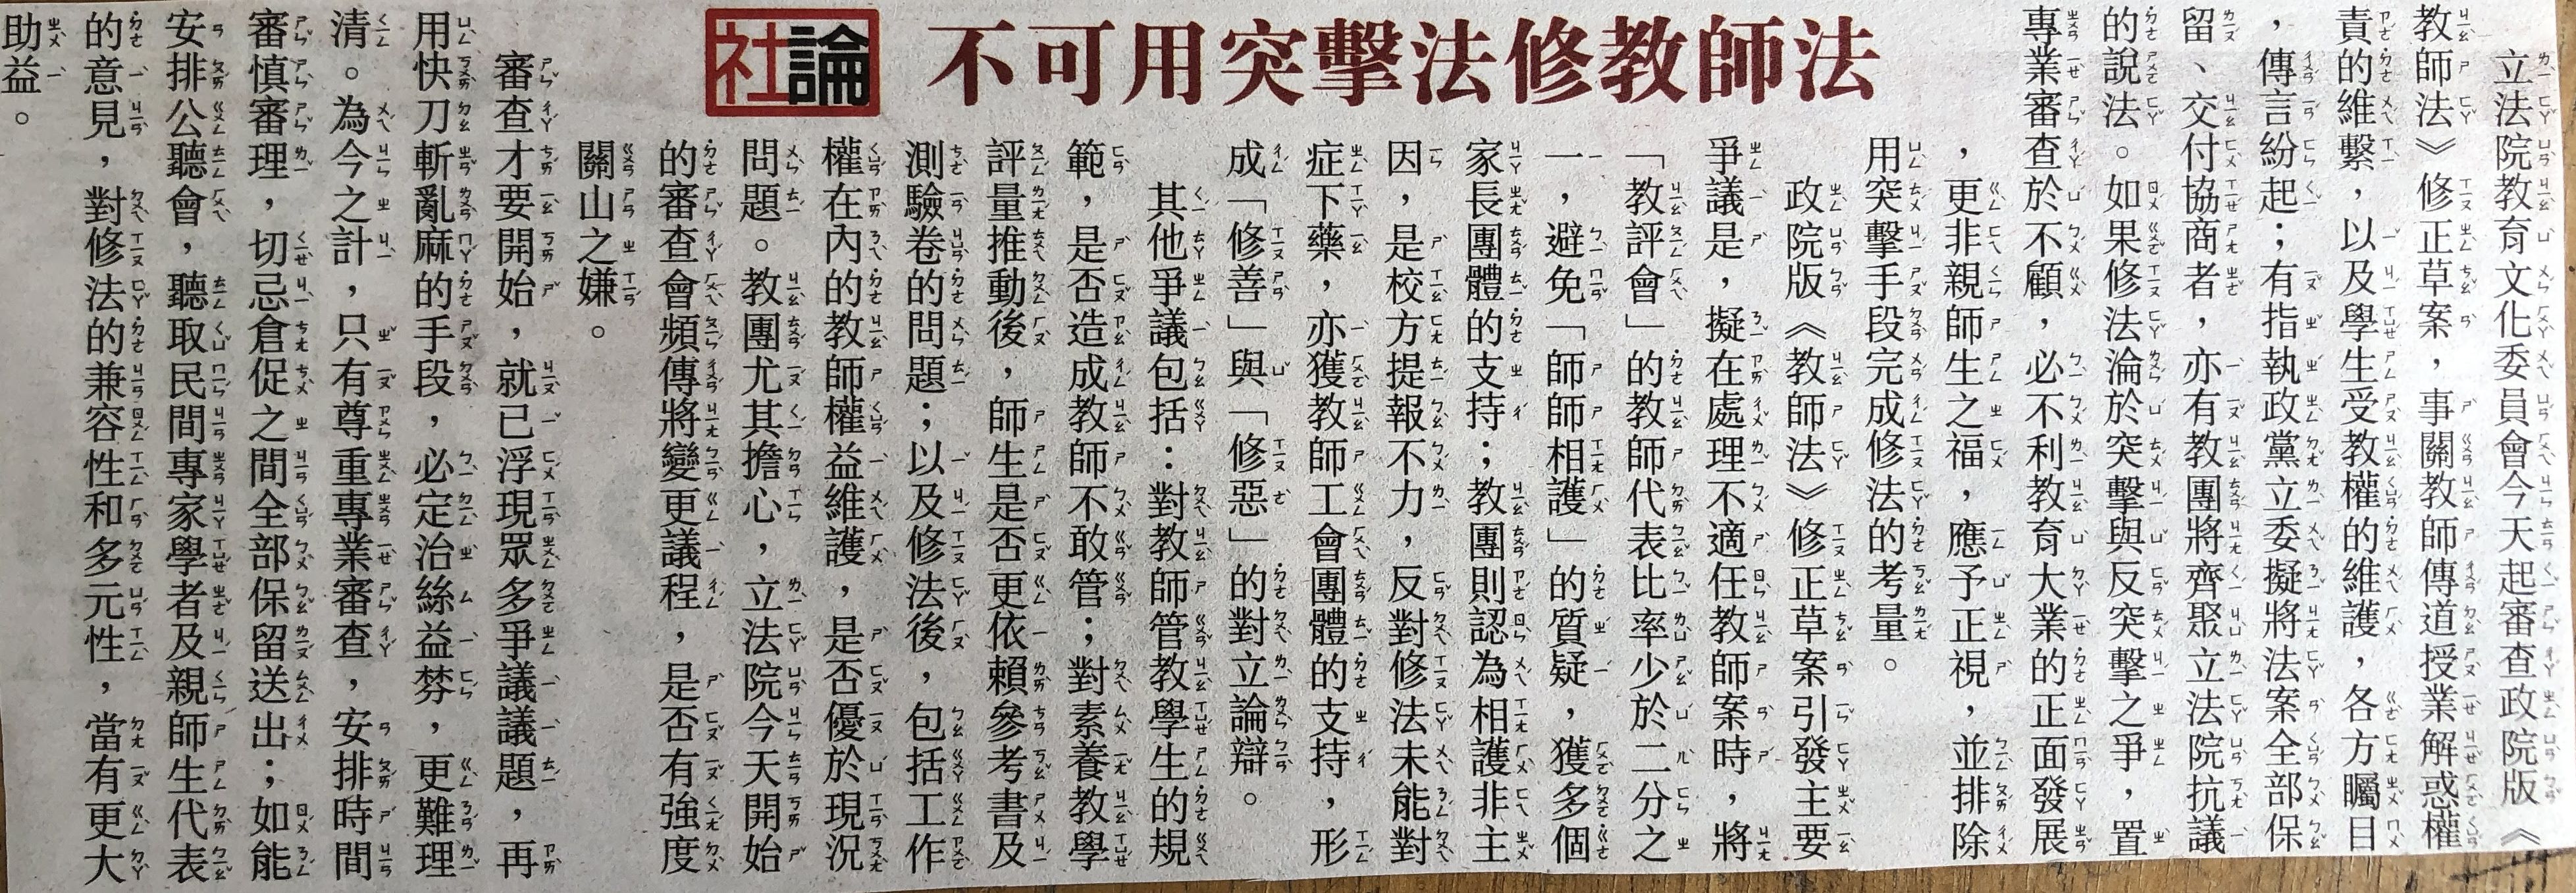 社論
不可用突擊法修教師法
立法院教育文化委員會今天起審查政院版《
教師法》修正草案，事關教師傳道授業解惑權
責的維繫，以及學生受教權的維護，各方矚目
，傳言紛起；有指執政黨立委擬將法案全部保
留、交付協商者，亦有教團將齊聚立法院抗議
的說法。如果修法淪於突擊與反突擊之爭，置
專業審查於不顧，必不利教育大業的正面發展
，更非親師生之福，應予正視，並排除
用突擊手段完成修法的考量。
政院版《教師法》修正草案引發主要
爭議是，擬在處理不適任教師案時，將
「教評會」的教師代表比率少於二分之
一，避免「師師相護」的質疑，獲多個
家長團體的支持；教團則認為相護非主
因，是校方提報不力，反對修法未能對
症下藥，亦獲教師工會團體的支持，形
成「修善」與「修惡」的對立論辯。
其他爭議包括：對教師管教學生的規
範，是否造成教師不敢管；對素養教學
評量推動後，師生是否更依賴參考書及
測驗卷的問題；以及修法後，包括工作
權在內的教師權益維護，是否優於現況
問題。教團尤其擔心，立法院今天開始
的審查會頻傳將變更議程，是否有強度
關山之嫌。
審查才要開始，就已浮現眾多爭議議題，再
用快刀斬亂麻的手段，必定治絲益棼，更難理
清。為今之計，只有尊重專業審查，安排時間
審慎審理，切忌倉促之間全部保留送出；如能
安排公聽會，聽取民間專家學者及親師生代表
的意見，對修法的兼容性和多元性，當有更大
助益。